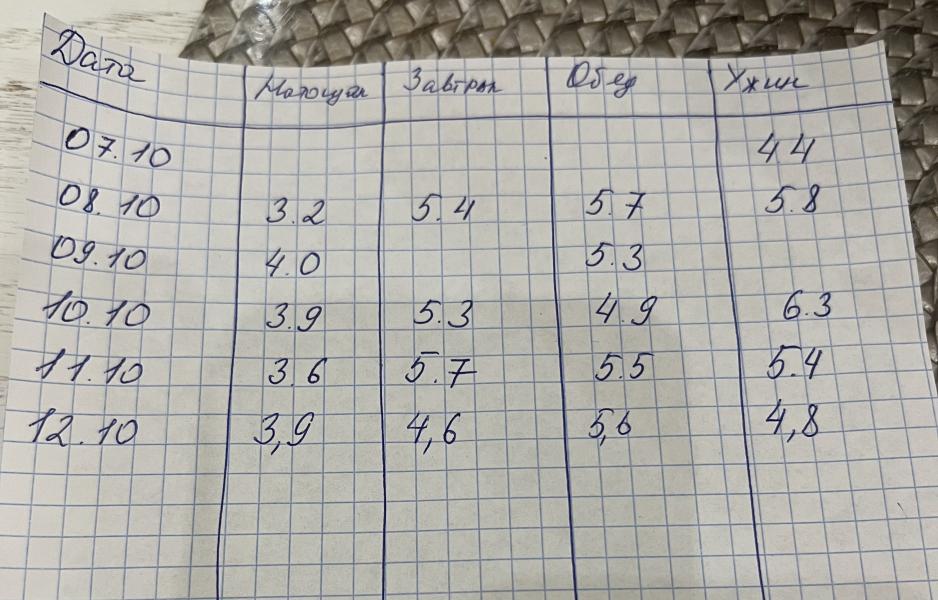 Дата Натощак Завтрак Обед Ужин
07.10 44
08.10 3.2 5.4 5.7 5.8
09.10 4.0 5.3
10.10 3.9 5.3 4.9 6.3
11.10 3.6 5.7 5.5 5.4
12.10 3,9 4,6 5,6 4,8